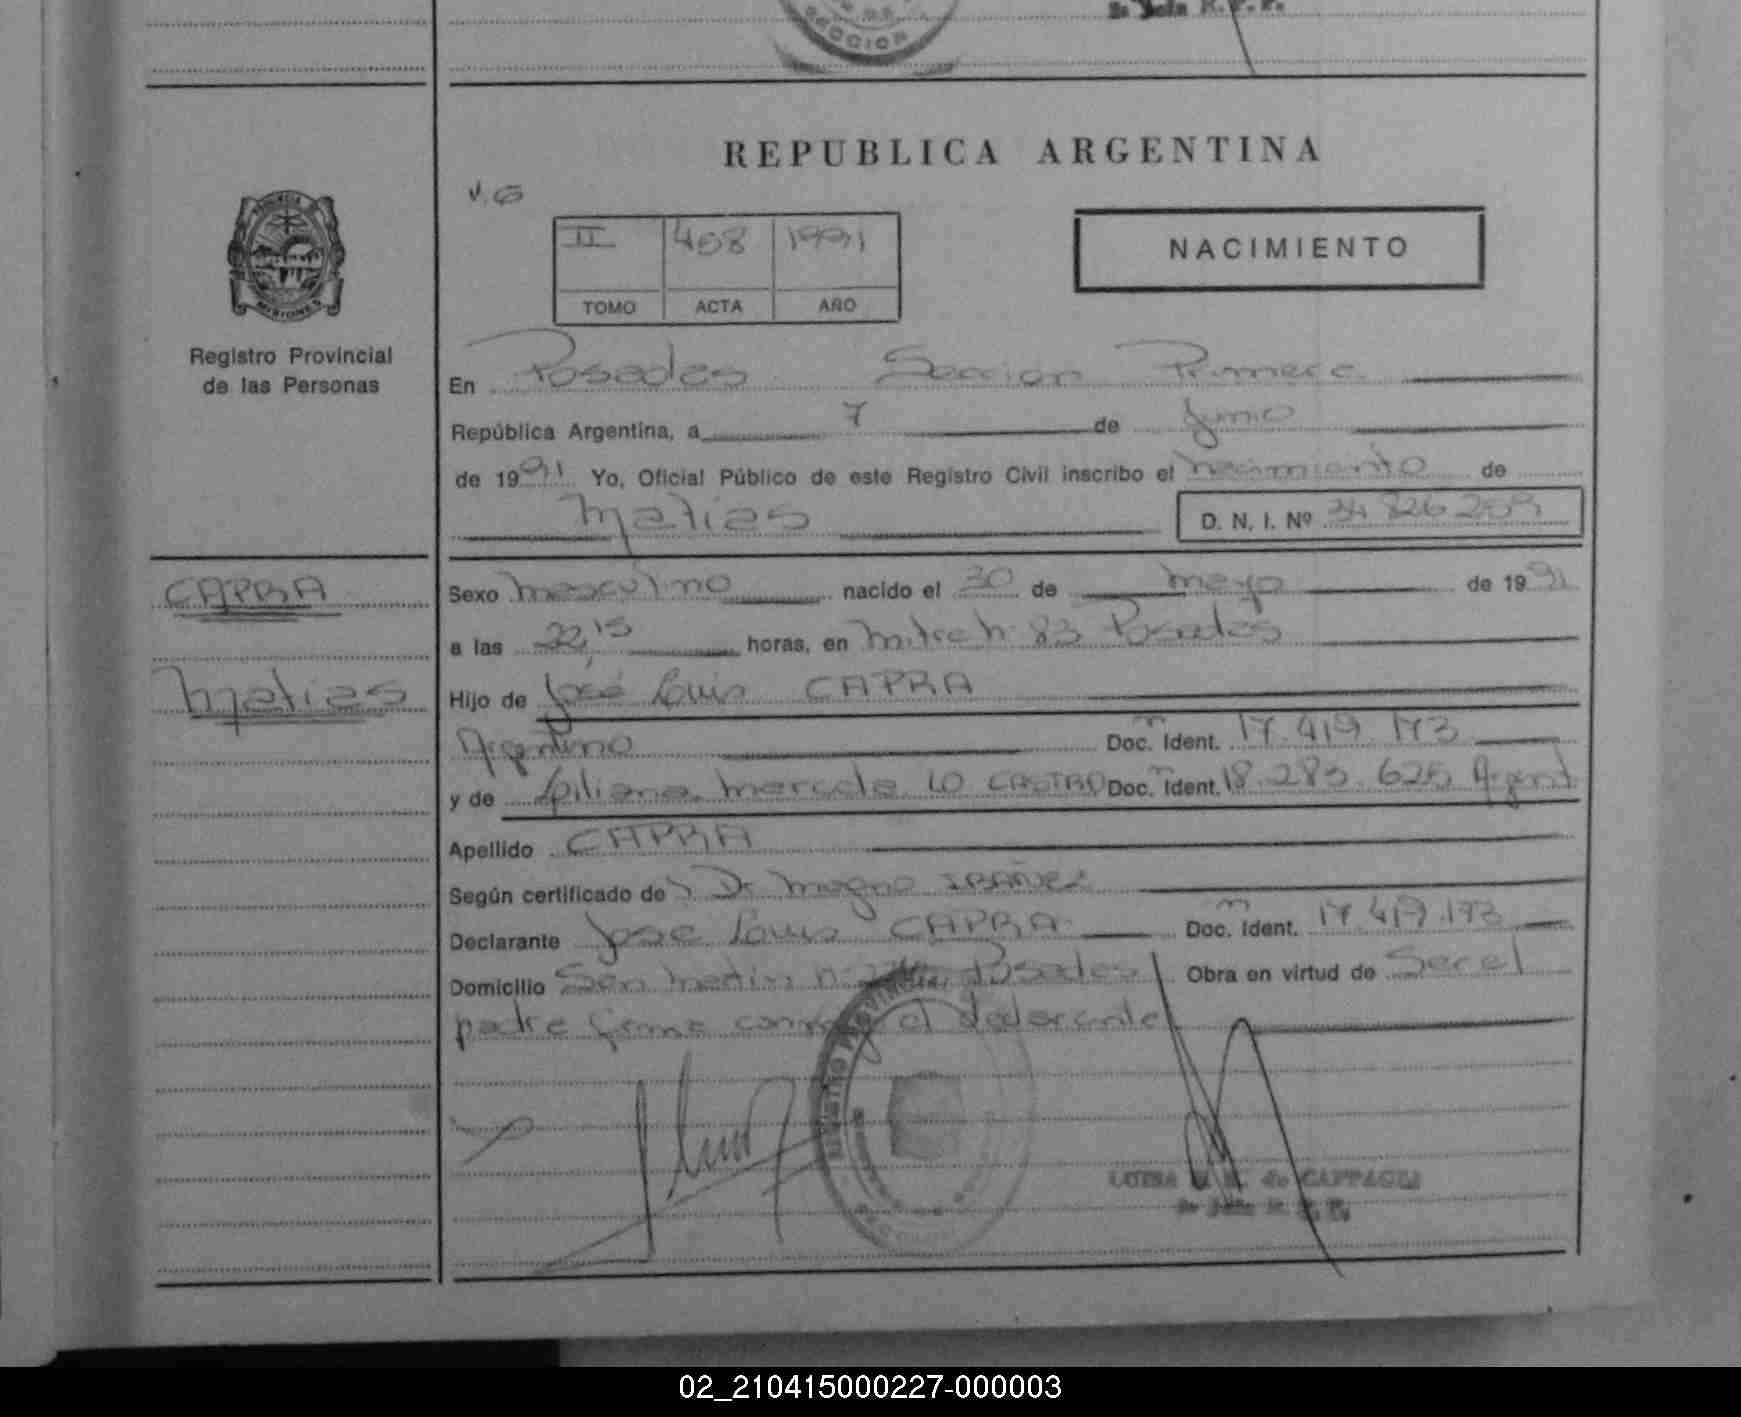 SECCION
REPUBLICA ARGENTINA
V.G
II 458 1991
TOMO ACTA AÑO
NACIMIENTO
MISIONES
Registro Provincial
de las Personas
En Posadas Seccion Primera
República Argentina, a 7 de Junio
de 1991 Yo, Oficial Público de este Registro Civil inscribo el nacimiento de
Matias D. N. I. Nº 34 826 259
CAPRA
Matias
Sexo masculino nacido el 30 de mayo de 1991
a las 22,15 horas, en Mitre nº 83 Posadas
Hijo de José Luis CAPRA
Argentino Doc. Ident. 17.419.173
y de Liliana Marcela LO CASTRO Doc. Ident. 18.283.625 Argent
Apellido CAPRA
Según certificado de Dr Magno IBAÑEZ
Declarante Jose Luis CAPRA Doc. Ident. 17.419.173
Domicilio San Martin Posadas Obra en virtud de Ser el
padre firma el declarante
REGISTRO PROVINCIAL
02_210415000227-000003